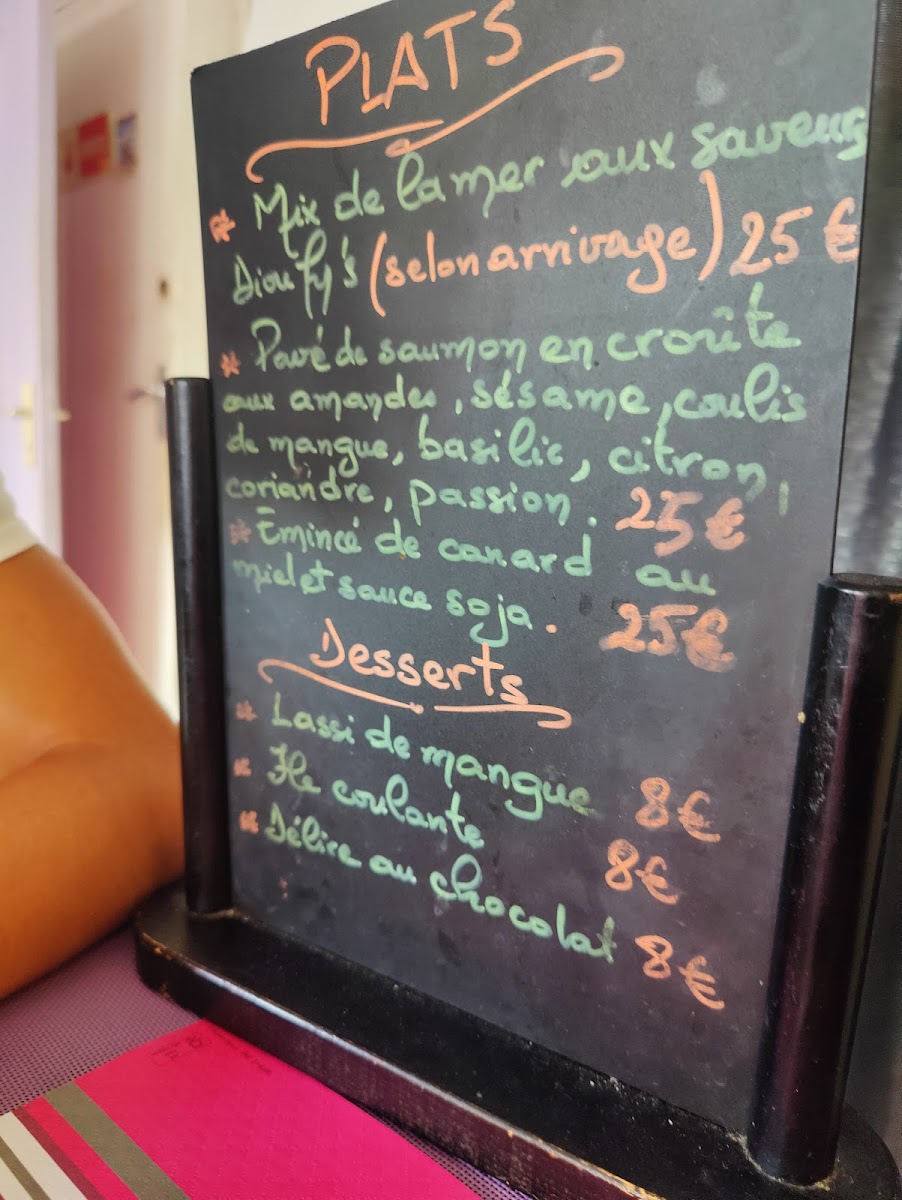 PLATS
* Mix de la mer aux saveurs
Dioufy's (selon arrivage) 25 €
* Pavé de saumon en croûte
aux amandes, sésame, coulis
de mangue, basilic, citron,
coriandre, passion. 25 €
* Émincé de canard au
miel et sauce soja. 25€
Desserts
* Lassi de mangue 8€
* Ile coulante 8€
* Délire au chocolat 8€